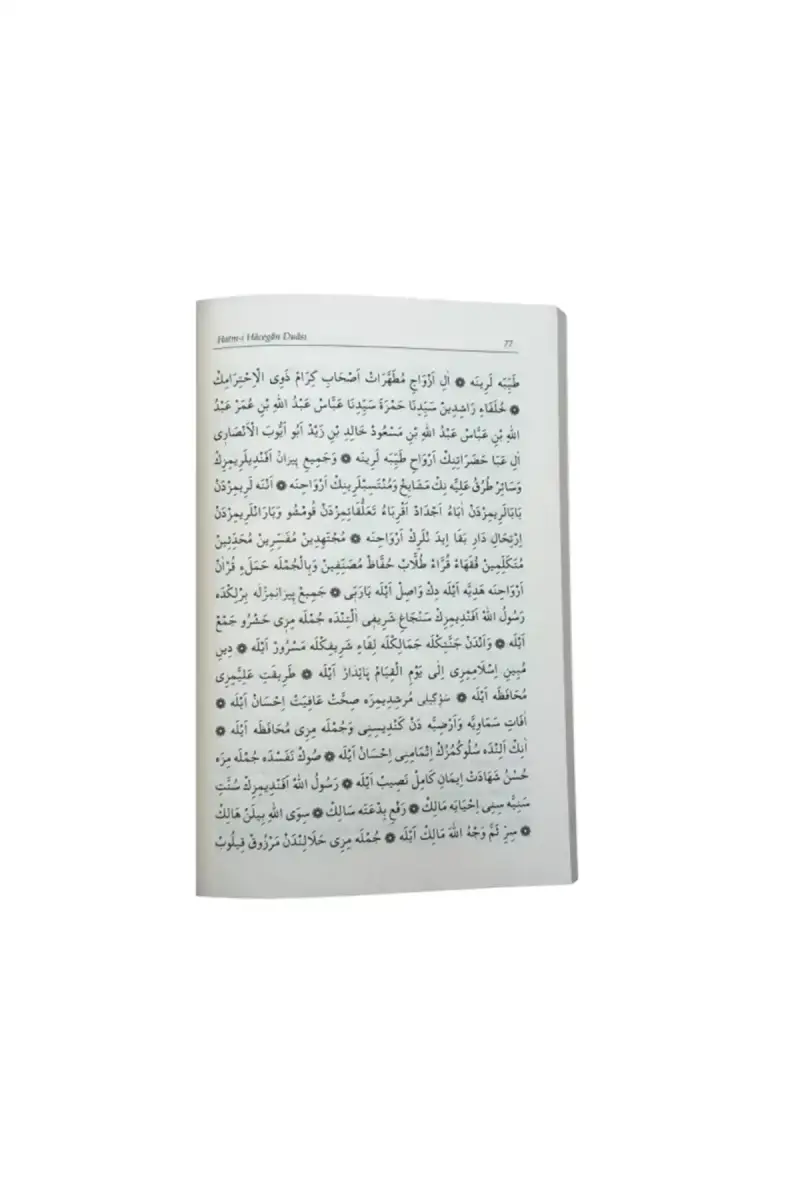 Hatm-i Hâcegân Duâsı
77
طَيِّبَه لَرِينَه ۞ اٰلِ اَزْوَاجِ مُطَهَّرَاتْ اَصْحَابِ كِرَامْ ذَوِى الْاِحْتِرَامِكْ
۞ خُلَفَاءِ رَاشِدِينْ سَيِّدِنَا حَمْزَةَ سَيِّدِنَا عَبَّاسْ عَبْدُ اللهِ بْنِ عُمَرْ عَبْدُ
اللهِ بْنِ عَبَّاسْ عَبْدُ اللهِ بْنِ مَسْعُودْ خَالِدِ بْنِ زَيْدْ اَبُو اَيُّوبَ الْاَنْصَارِى
اٰلِ عَبَا حَضَرَاتِنِكْ اَرْوَاحِ طَيِّبَه لَرِينَه ۞ وَجَمِيعِ پِيرَانْ اَفَنْدِيلَرِيمِزِكْ
وَسَائِرْ طُرُقِ عَلِيَّه نِكْ مَشَايِخْ وَمُنْتَسِبْلَرِينِكْ اَرْوَاحِنَه ۞ اَنْنَه لَرِيمِزْدَنْ
بَابَالَرِيمِزْدَنْ اٰبَاءْ اَجْدَادْ اَقْرِبَاءْ تَعَلُّقَاتِمِزْدَنْ قُومْشُو وَيَارَانْلَرِيمِزْدَنْ
اِرْتِحَالِ دَارِ بَقَا اِيدَ نْلَرِكْ اَرْوَاحِنَه ۞ مُجْتَهِدِينْ مُفَسِّرِينْ مُحَدِّثِينْ
مُتَكَلِّمِينْ فُقَهَاءْ قُرَّاءْ طُلَّابْ حُفَّاظْ مُصَنِّفِينْ وَبِالْجُمْلَه حَمَلَهءِ قُرْاٰنْ
اَرْوَاحِنَه هَدِيَّه اَيْلَه دِكْ وَاصِلْ اَيْلَه يَارَبِّى ۞ جَمِيعِ پِيرَانِمِزْلَه بِرْلِكْدَه
رَسُولُ اللهْ اَفَنْدِيمِزِكْ سَنْجَاغِ شَرِيفِى اٰلْتِنْدَه جُمْلَه مِزِى حَشْرُو جَمْعْ
اَيْلَه ۞ وَاَنْدَنْ جَنَّتِكْلَه جَمَالِكْلَه لِقَاءِ شَرِيفِكْلَه مَسْرُورْ اَيْلَه ۞ دِينِ
مُبِينِ اِسْلَامِمِزِى اِلٰى يَوْمِ الْقِيَامْ پَائِدَارْ اَيْلَه ۞ طَرِيقَتِ عَلِيَّمِزِى
مُحَافَظَه اَيْلَه ۞ سَوْكِيلِى مُرشِدِيمِزَه صِحَّتْ عَافِيَتْ اِحْسَانْ اَيْلَه ۞
اٰفَاتِ سَمَاوِيَّه وَاَرْضِيَّه دَنْ كَنْدِيسِنِى وَجُمْلَه مِزِى مُحَافَظَه اَيْلَه ۞
اٰنِكْ اَلِنْدَه سُلُوكُمُزُكْ اِتْمَامِنِى اِحْسَانْ اَيْلَه ۞ صُوكْ نَفَسْدَه جُمْلَه مِزَه
حُسْنُ شَهَادَتْ اِيمَانِ كَامِلْ نَصِيبْ اَيْلَه ۞ رَسُولُ اللهْ اَفَنْدِيمِزِكْ سُنَّتِ
سَنِيَّه سِنِى اِحْيَايَه مَالِكْ ۞ رَفْعِ بِدْعَتَه سَالِكْ ۞ سِوَى اللهِ بِيلَنْ هَالِكْ
۞ سِرِّ ثَمَّ وَجْهُ اللهَ مَالِكْ اَيْلَه ۞ جُمْلَه مِزِى حَلَالِنْدَنْ مَرْزُوقْ قِيلُوبْ